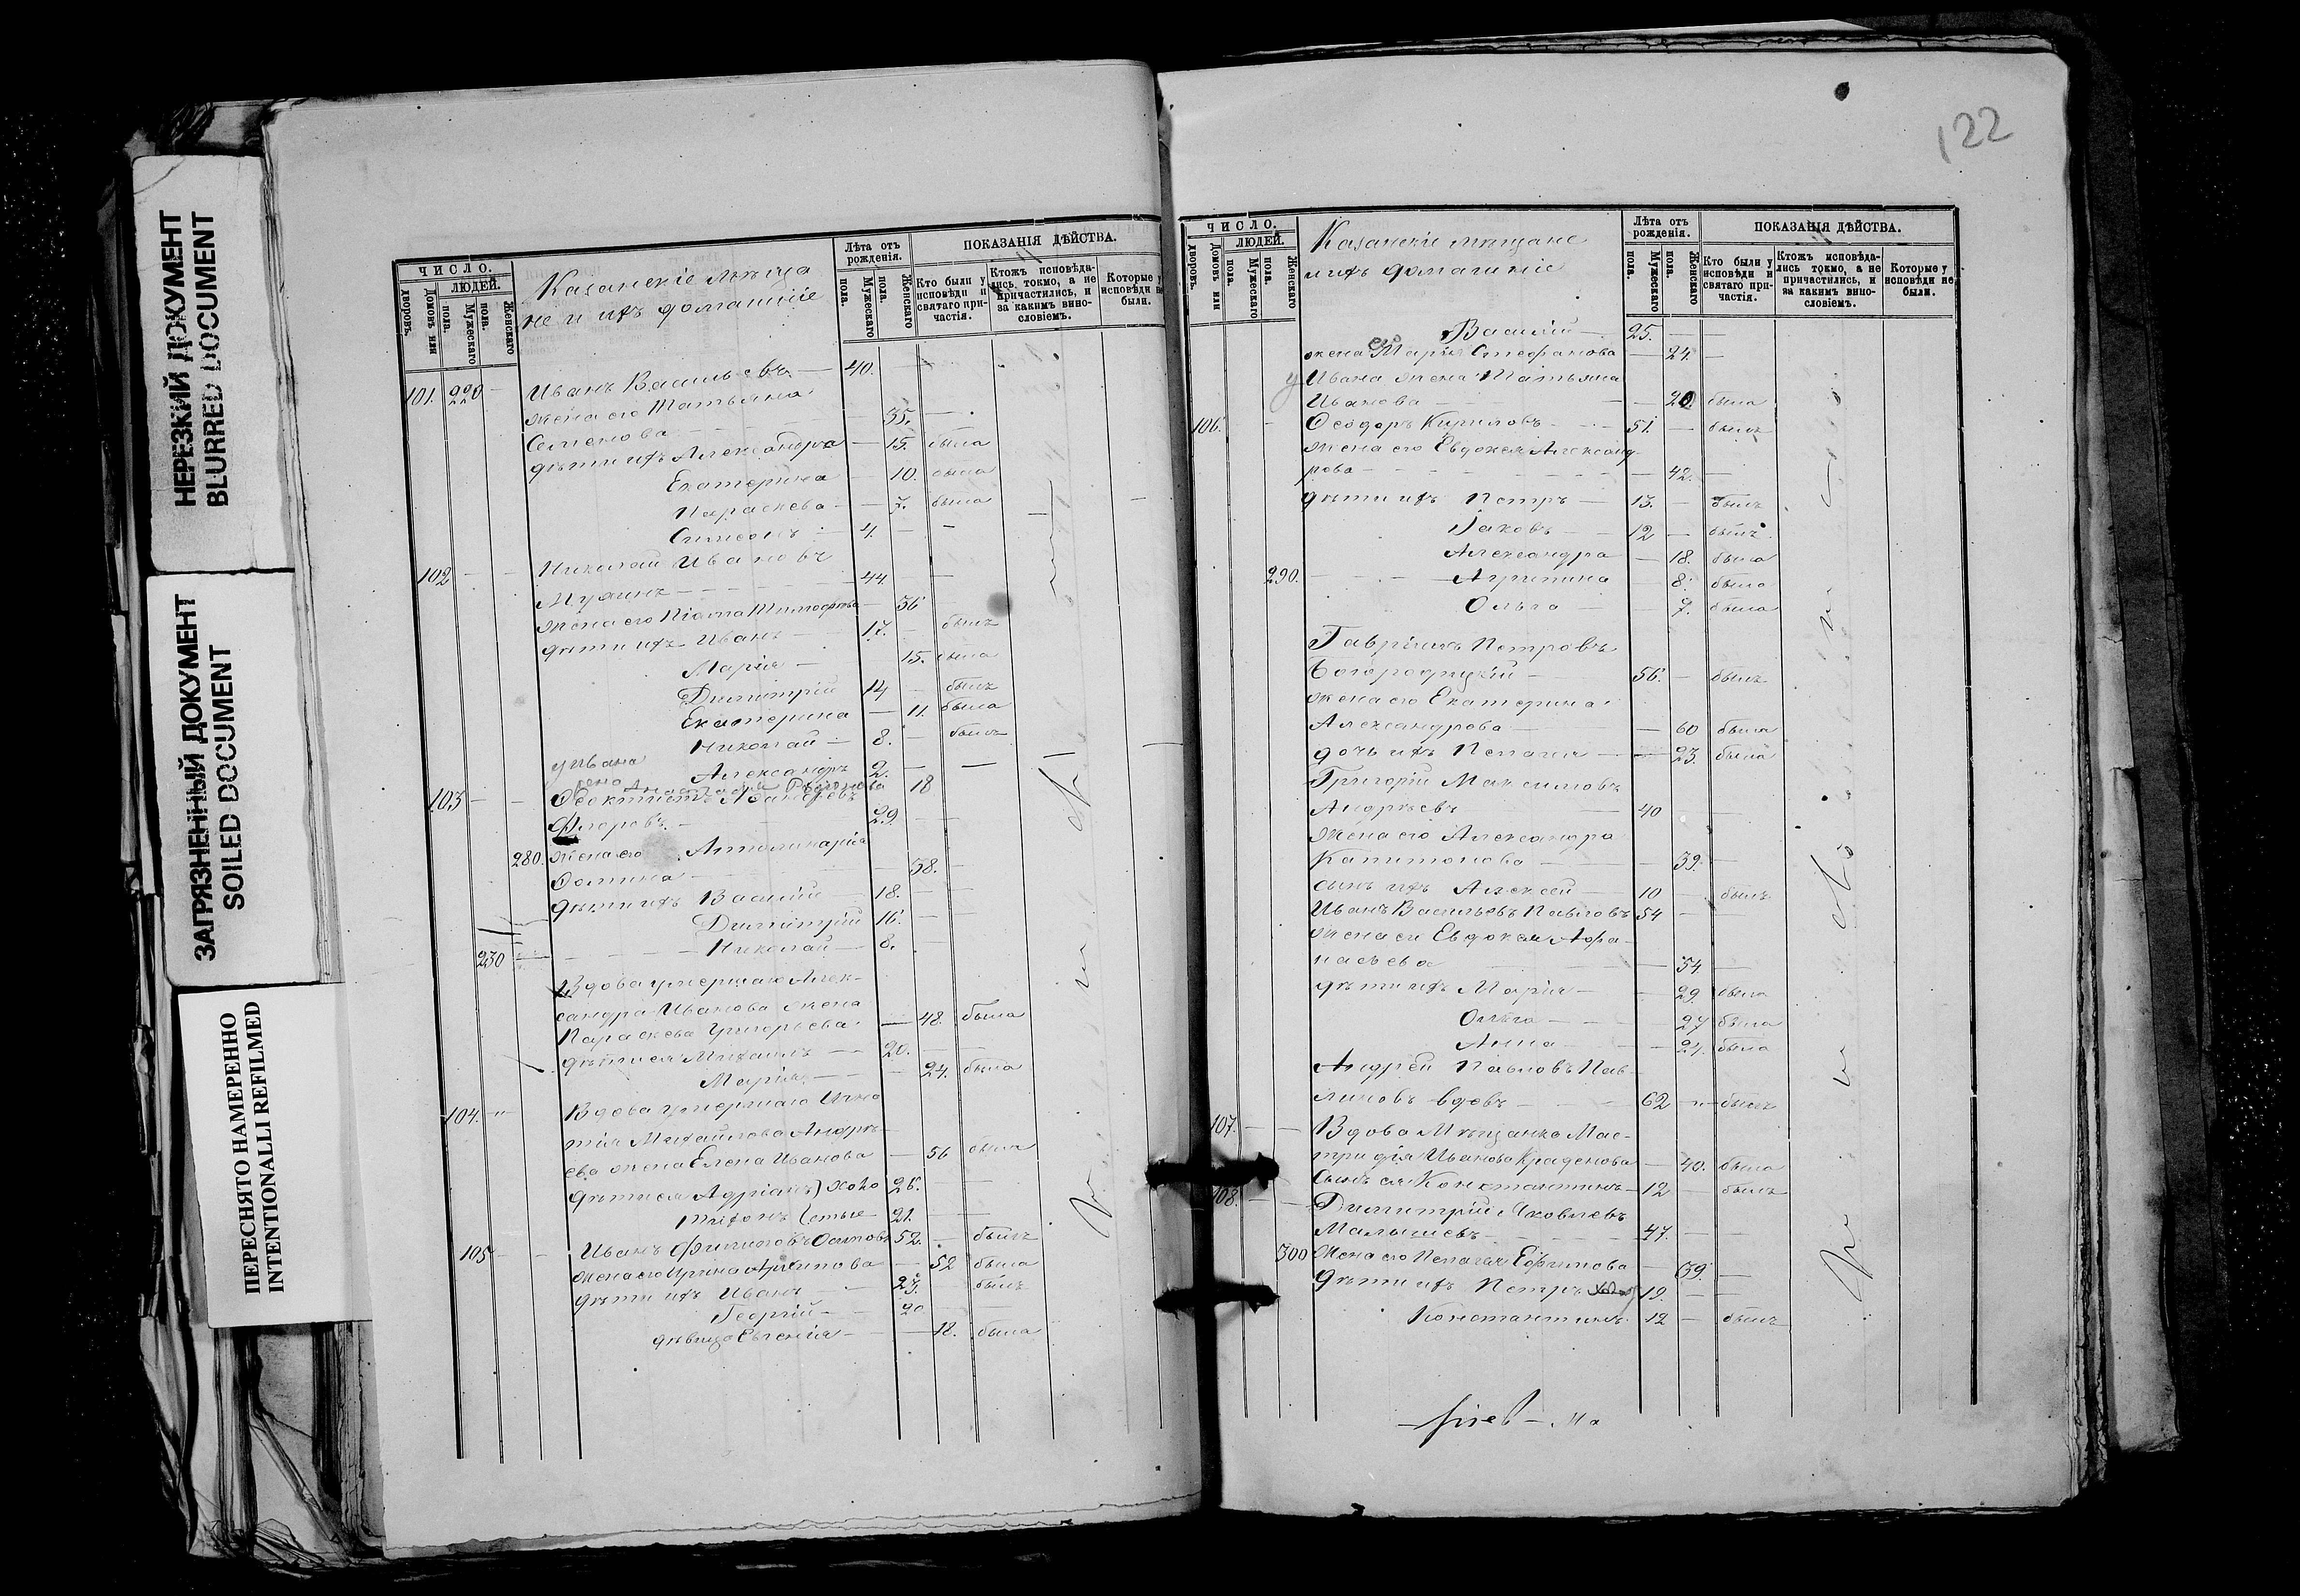 НЕРЕЗКИЙ ДОКУМЕНТ
BLURRED DOCUMENT
ЗАГРЯЗНЕННЫЙ ДОКУМЕНТ
SOILED DOCUMENT
ПЕРЕСНЯТО НАМЕРЕННО
INTENTIONALLI REFILMED
ЧИСЛО.
ЛЮДЕЙ.
Домовъ или дворовъ.
Мужескаго пола.
Женскаго пола.
Казанскіе мѣща
не и ихъ домашніе
Лѣта отъ рожденія.
Мужескаго пола.
Женскаго пола.
ПОКАЗАНІЯ ДѢЙСТВА.
Кто были у исповѣди и святаго причастія.
Ктожъ исповѣдались токмо, а не причастились, и за какимъ винословіемъ.
Которые у исповѣди не были.
101. 220 — Иванъ Васильевъ — 40.
жена его Татьяна
Семенова — 35. —
дѣти ихъ Александра — 15. была
Екатерина — 10. была
Параскева — 7. была
Симеонъ — 4. —
102 — Николай Ивановъ
— 44 —
жена его — 36
дѣти ихъ Иванъ — 17. — былъ
Марія — 15. была
Димитрій 14 — былъ
Екатерина — 11. была
Николай — 8. — былъ
Александръ 2. — —
у Ивана
жена 18
103 — Ѳеоктистъ
Флоровъ — 29. —
280. жена его Апполинарія
Ѳомина — 38. —
дѣти ихъ Василій 18. —
Димитрій 16. —
230 — Николай 8. —
Вдова умершаго Алек-
сандра Иванова жена
Параскева Григорьева — 48. была
дѣти ея Михаилъ — 20. —
Марія — 24. была
104. Вдова умершаго Игна
тія Михайлова Андрѣ-
ева жена Елена Иванова — 56 была
дѣти ея Адріанъ 26. —
21. —
105 — Иванъ Филиповъ Осиповъ 52. — былъ
жена его Ирина — 52 была
дѣти ихъ Иванъ — 23. былъ
Георгій — 20
дѣвица Евгенія — 18. была
122
ЧИСЛО.
ЛЮДЕЙ.
Домовъ или дворовъ.
Мужескаго пола.
Женскаго пола.
Казанскіе мѣщане
и ихъ домашніе
Лѣта отъ рожденія.
Мужескаго пола.
Женскаго пола.
ПОКАЗАНІЯ ДѢЙСТВА.
Кто были у исповѣди и святаго причастія.
Ктожъ исповѣдались токмо, а не причастились, и за какимъ винословіемъ.
Которые у исповѣди не были.
Василій — 25. —
жена его Марія Стефанова — 24. —
у Ивана жена Татьяна
Иванова — 20 была
106. Ѳеодоръ Кириловъ — 51. — былъ
жена его Евдокія Александ-
рова — 42. —
дѣти ихъ Петръ — 13. — былъ
Іаковъ — 12 — былъ
Александра — 18. была
290. Агрипина — 8. была
Ольга — 7. была
Гавріилъ Петровъ
Богородицкій — 56. — былъ
жена его Екатерина
Александрова — 60 была
дочь ихъ Пелагія — 23. была
Григорій Максимовъ
Андрѣевъ — 40
жена его Александра
Капитонова — 39. —
сынъ ихъ Алексѣй — 10 — былъ
Иванъ Васильевъ Павловъ 54 —
жена его Евдокія Афа-
насьева — 54 —
дѣти ихъ Марія — 29 была
Ольга — 27 была
Анна — 24. была
Андрей Павловъ Пав-
линовъ вдовъ — 62 — былъ
107. Вдова Мѣщанка Мас-
тридія Иванова — 40. была
Сынъ ея Константинъ — 12 — былъ
108. Димитрій Яковлевъ
Малышевъ — 47. —
300 жена его Пелагія Ефимова — 39. —
дѣти ихъ Петръ 19. — —
Константинъ 12 — былъ